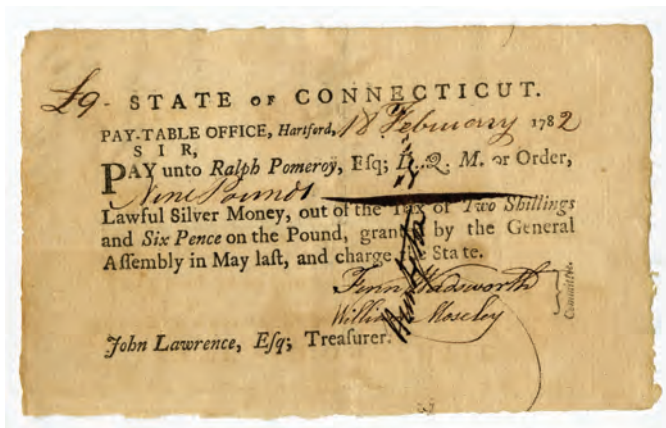 £9- STATE OF CONNECTICUT.
PAY-TABLE OFFICE, Hartford, 18 February 1782
S I R,
PAY unto Ralph Pomeroy, Eſq; D. Q. M. or Order,
Nine Pounds
Lawful Silver Money, out of the Tax of Two Shillings
and Six Pence on the Pound, granted by the General
Aſſembly in May laſt, and charge the State.
Fenn Wadsworth
William Moseley
Committee.
John Lawrence, Eſq; Treaſurer.